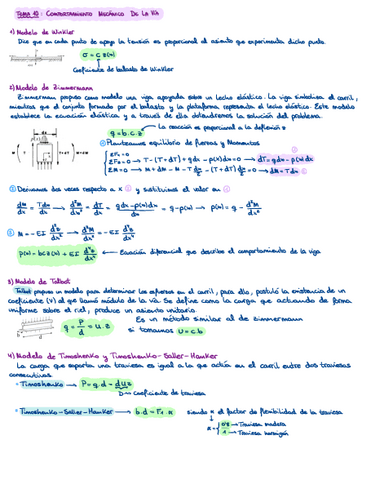 TEMA 10: COMPORTAMIENTO MECÁNICO DE LA VÍA
1) Modelo de Winkler
Dice que en cada punto de apoyo la tensión es proporcional al asiento que experimenta dicho punto.
σ = C z(x)
Coeficiente de balasto de Winkler
2) Modelo de Zimmermann
Zimmerman propuso como modelo una viga apoyada sobre un lecho elástico. La viga simboliza el carril,
mientras que el conjunto formado por el balasto y la plataforma representa el lecho elástico. Este modelo
establece la ecuación elástica y a través de ella obtendremos la solución del problema.
q = b.c.z
La reacción es proporcional a la deflexión z
① Planteamos equilibrio de fuerzas y Momentos
ΣFx = 0
ΣFz = 0 → T - (T + dT) + q dx - p(x)dx = 0 → dT = q dx - p(x) dx
ΣM = 0 → M + dM - M - T dx/2 - (T + dT) dx/2 = 0 → dM = T dx
② Derivamos dos veces respecto a x y sustituimos el valor en
dM/dx = T dx/dx → d²M/dx² = dT/dx = q dx - p(x)dx/dx = q - p(x) → p(x) = q - d²M/dx²
M = - EI d²z/dx² → d²M/dx² = - EI d⁴z/dx⁴
p(x) = b c z(x) + EI d⁴z/dx⁴ ← Ecuación diferencial que describe el comportamiento de la viga
3) Modelo de Talbot
Talbot propuso un modelo para determinar los esfuerzos en el carril, para ello, postuló la existencia de un
coeficiente (u) al que llamó módulo de la vía. Se define como la carga que actuando de forma
uniforme sobre el riel, produce un asiento unitario.
q = P/d = u.z
Es un método similar al de zimmermann
si tomamos u = c.b
4) Modelo de Timoshenko y Timoshenko-Saller-Hanker
La carga que soporta una traviesa es igual a la que actúa en el carril entre dos traviesas
consecutivas.
· Timoshenko → P = q.d = d u z
D → Coeficiente de traviesa
· Timoshenko-Saller-Hanker → b.d = F1.α siendo α el factor de flexibilidad de la traviesa
→ Traviesa madera
α =
1 → Traviesa hormigón